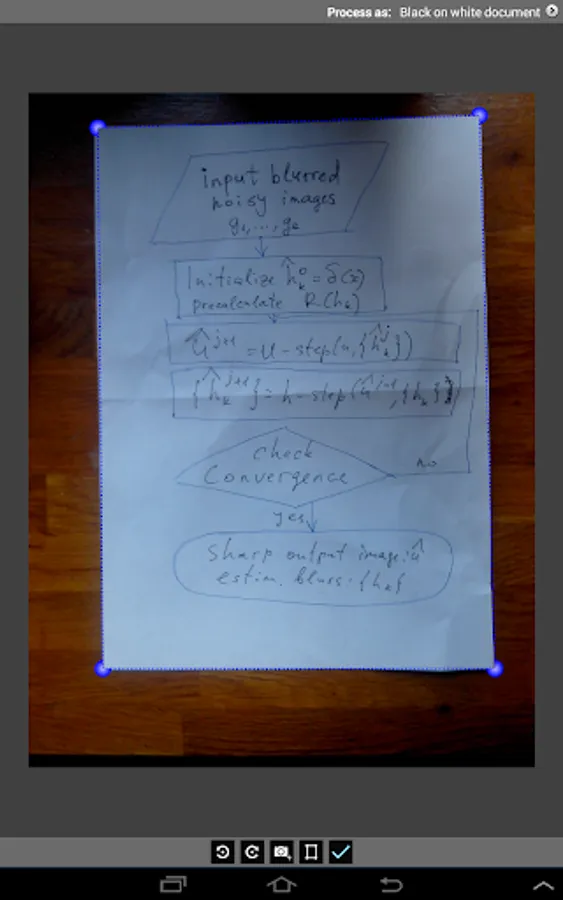 Process as: Black on white document
input blurred
noisy images
g₁,...,g
Initialize ĥₖ⁰ = δ(x)
precalculate R(hₖ)
û^{j+1} = u-step(u,{ĥₖ^j})
{ĥₖ^{j+1}} = h-step(û^{j+1},{hₖ}
check
Convergence
no
yes
Sharp output image: û
estim. blurs: {hₖ}